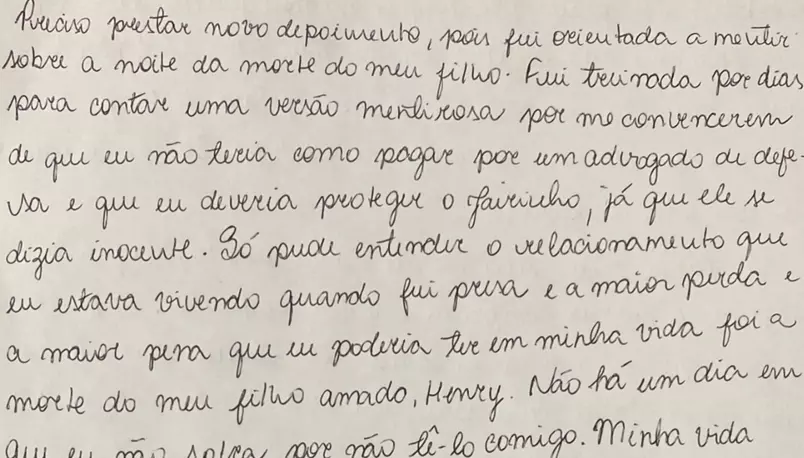 Preciso prestar novo depoimento, pois fui orientada a mentir
sobre a noite da morte do meu filho. Fui treinada por dias
para contar uma versão mentirosa por me convencerem
de que eu não teria como pagar por um advogado de defe-
sa e que eu deveria proteger o Jairinho, já que ele se
dizia inocente. Só pude entender o relacionamento que
eu estava vivendo quando fui presa e a maior perda e
a maior pena que eu poderia ter em minha vida foi a
morte do meu filho amado, Henry. Não há um dia em
que eu não sofra por não tê-lo comigo. Minha vida